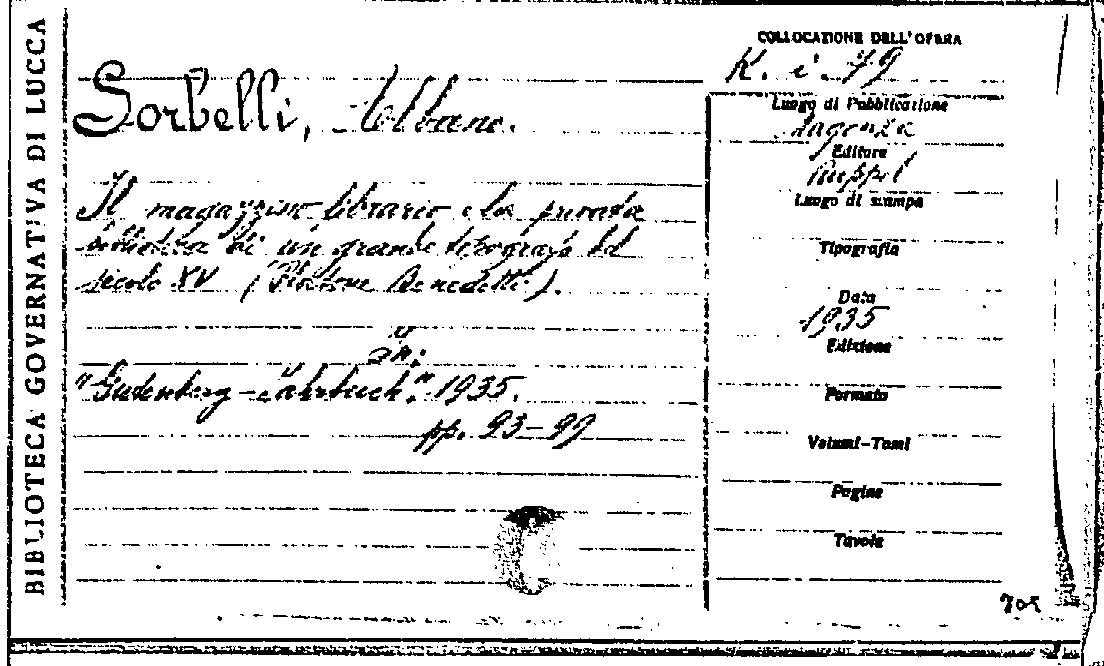 BIBLIOTECA GOVERNATIVA DI LUCCA
COLLOCAZIONE DELL'OPERA
K. i. 79
Sorbelli, Albano.
Luogo di Pubblicazione
Magonza
Editore
Ruppel
Luogo di stampa
Il magazzino librario e la privata
biblioteca di un grande tipografo del
secolo XV (Platone Benedetti).
Tipografia
Data
1935
Edizione
In:
"Gutenberg-Jahrbuch." 1935.
pp. 93-99
Formato
Volumi-Tomi
Pagine
Tavole
705